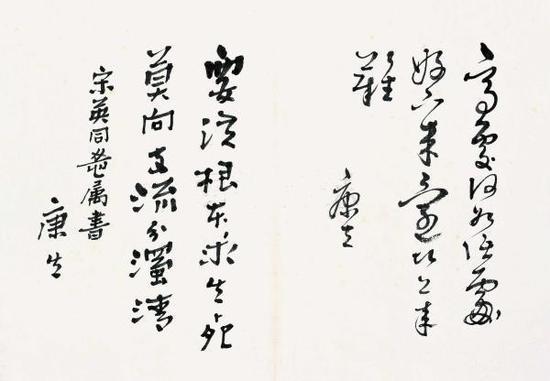 高處何如低處
好下來還比上來
難
康生
要從根本求生死
莫向支流分濁清
宋英同志属書
康生